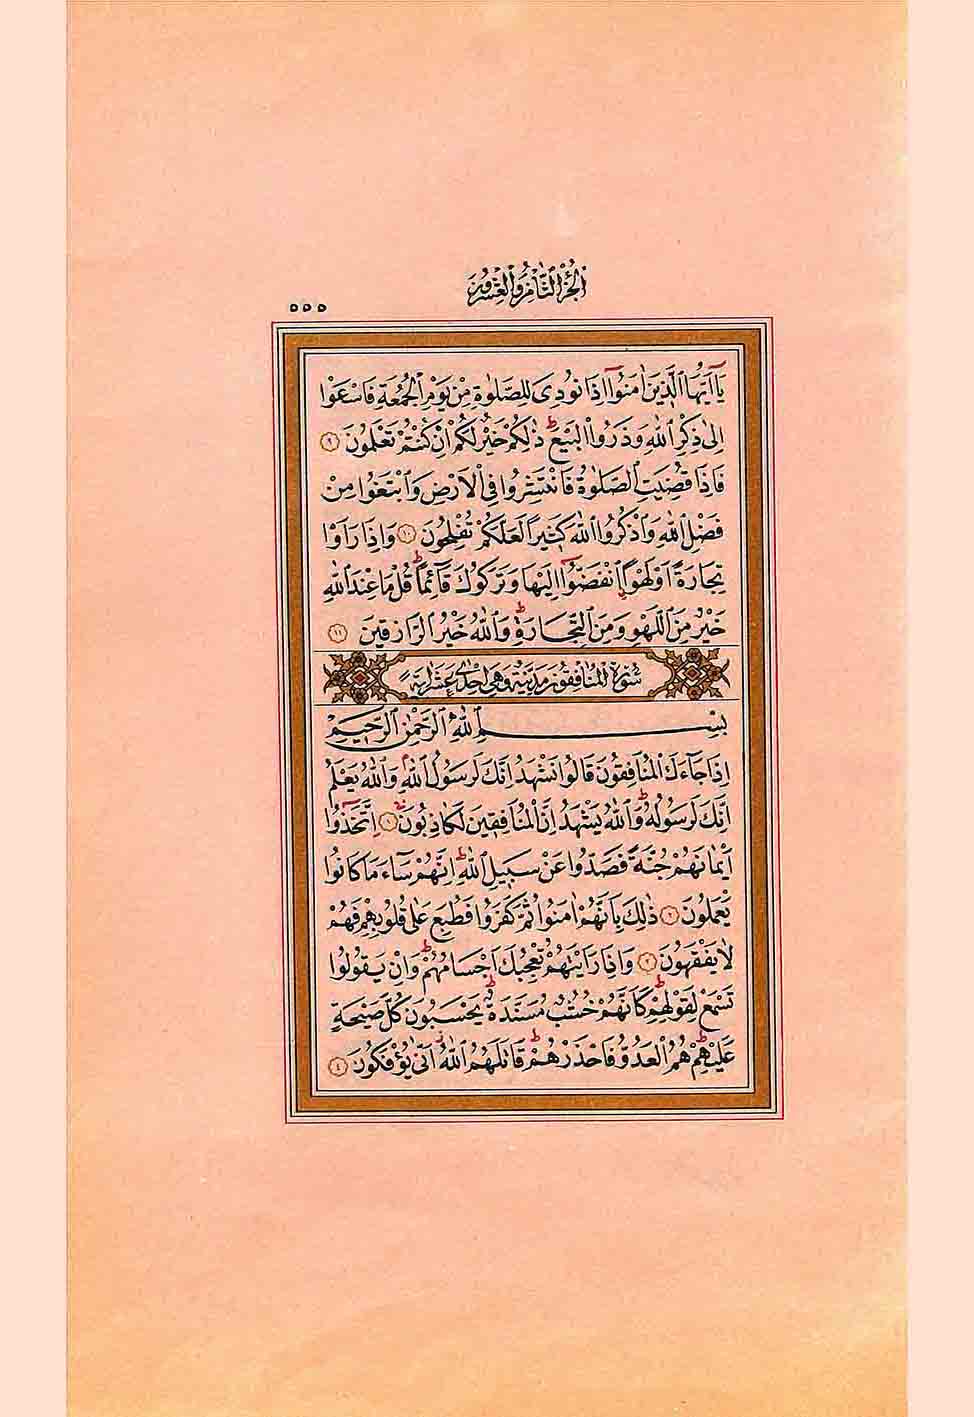 الجزء الثامن والعشرون
٥٥٥
يَآ اَيُّهَا الَّذٖينَ اٰمَنُٓوا اِذَا نُودِيَ لِلصَّلٰوةِ مِنْ يَوْمِ الْجُمُعَةِ فَاسْعَوْا
اِلٰى ذِكْرِ اللّٰهِ وَذَرُوا الْبَيْعَۜ ذٰلِكُمْ خَيْرٌ لَكُمْ اِنْ كُنْتُمْ تَعْلَمُونَ ﴿٩﴾
فَاِذَا قُضِيَتِ الصَّلٰوةُ فَانْتَشِرُوا فِي الْاَرْضِ وَابْتَغُوا مِنْ
فَضْلِ اللّٰهِ وَاذْكُرُوا اللّٰهَ كَثٖيرًا لَعَلَّكُمْ تُفْلِحُونَ ﴿١٠﴾ وَاِذَا رَاَوْا
تِجَارَةً اَوْ لَهْوًاۨ انْفَضُّٓوا اِلَيْهَا وَتَرَكُوكَ قَآئِمًاۜ قُلْ مَا عِنْدَ اللّٰهِ
خَيْرٌ مِنَ اللَّهْوِ وَمِنَ التِّجَارَةِۜ وَاللّٰهُ خَيْرُ الرَّازِقٖينَ ﴿١١﴾
سُورَةُ الْمُنَافِقُونَ مَدَنِيَّةٌ وَهِيَ اِحْدٰى عَشْرَةَ اٰيَةً
بِسْمِ اللّٰهِ الرَّحْمٰنِ الرَّحٖيمِ
اِذَا جَآءَكَ الْمُنَافِقُونَ قَالُوا نَشْهَدُ اِنَّكَ لَرَسُولُ اللّٰهِۢ وَاللّٰهُ يَعْلَمُ
اِنَّكَ لَرَسُولُهُۜ وَاللّٰهُ يَشْهَدُ اِنَّ الْمُنَافِقٖينَ لَكَاذِبُونَۚ ﴿١﴾ اِتَّخَذُٓوا
اَيْمَانَهُمْ جُنَّةً فَصَدُّوا عَنْ سَبٖيلِ اللّٰهِۜ اِنَّهُمْ سَآءَ مَا كَانُوا
يَعْمَلُونَ ﴿٢﴾ ذٰلِكَ بِاَنَّهُمْ اٰمَنُوا ثُمَّ كَفَرُوا فَطُبِعَ عَلٰى قُلُوبِهِمْ فَهُمْ
لَا يَفْقَهُونَ ﴿٣﴾ وَاِذَا رَاَيْتَهُمْ تُعْجِبُكَ اَجْسَامُهُمْۜ وَاِنْ يَقُولُوا
تَسْمَعْ لِقَوْلِهِمْۜ كَاَنَّهُمْ خُشُبٌ مُسَنَّدَةٌۜ يَحْسَبُونَ كُلَّ صَيْحَةٍ
عَلَيْهِمْۜ هُمُ الْعَدُوُّ فَاحْذَرْهُمْۜ قَاتَلَهُمُ اللّٰهُۘ اَنّٰى يُؤْفَكُونَ ﴿٤﴾